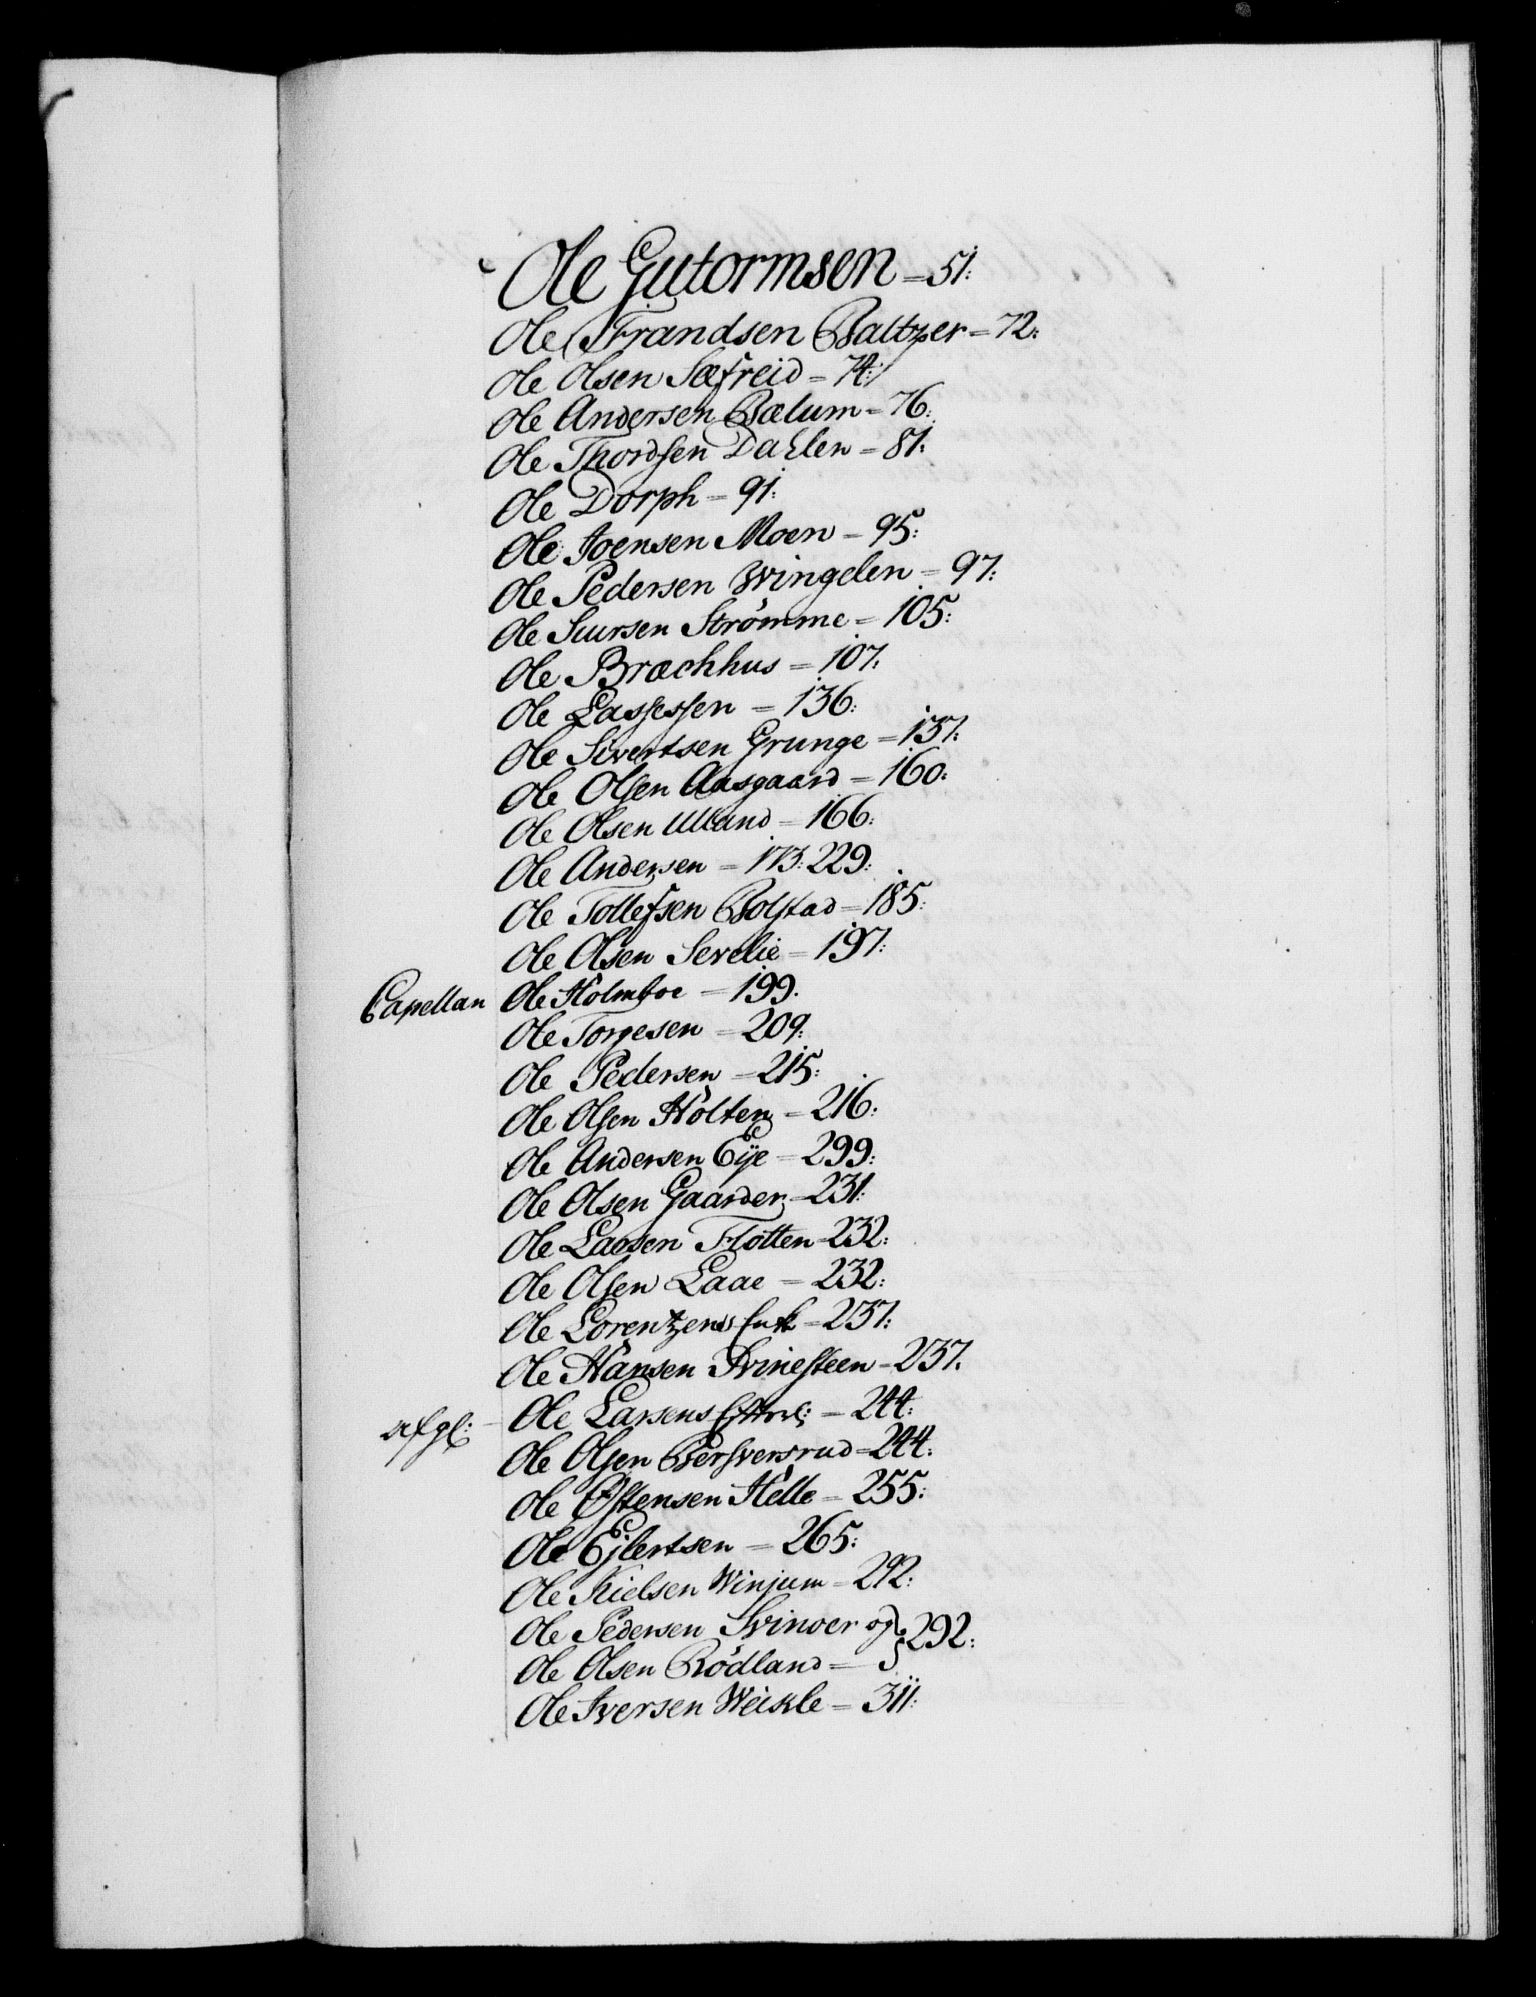 Ole Gutormsen = 51:
Ole Frandsen Baltzer = 72:
Ole Olsen Sæfreid = 74:
Ole Andersen Bælum = 76:
Ole Thordsen Dahlen = 81:
Ole Dorph = 91:
Ole Joensen Moen = 95:
Ole Pedersen Wingelen = 97:
Ole Siursen Strømme = 105:
Ole Bræchhus = 107:
Ole Lassessen = 136:
Ole Sivertsen Grunge = 137:
Ole Olsen Aasgaard = 160:
Ole Olsen Ulland = 166:
Ole Andersen = 173: 229:
Ole Tollefsen Bolstad = 185:
Ole Olsen Sevelie = 197:
Capellan Ole Holmboe = 199.
Ole Torgesen = 209:
Ole Pedersen = 215:
Ole Olsen Holten = 216:
Ole Andersen Eije = 299:
Ole Olsen Gaarder = 231:
Ole Larsen Flotten = 232:
Ole Olsen Laae = 232:
Ole Lorentzens Enke = 237:
Ole Hansen Svinesteen = 237.
afgl: Ole Larsens Efterl: = 244:
Ole Olsen Bersversrud = 244:
Ole Østensen Helle = 255:
Ole Ejlertsen = 265:
Ole Nielsen Winjum = 292:
Ole Pedersen Svinoer og } 292:
Ole Olsen Rødland =
Ole Iversen Weikle = 311: